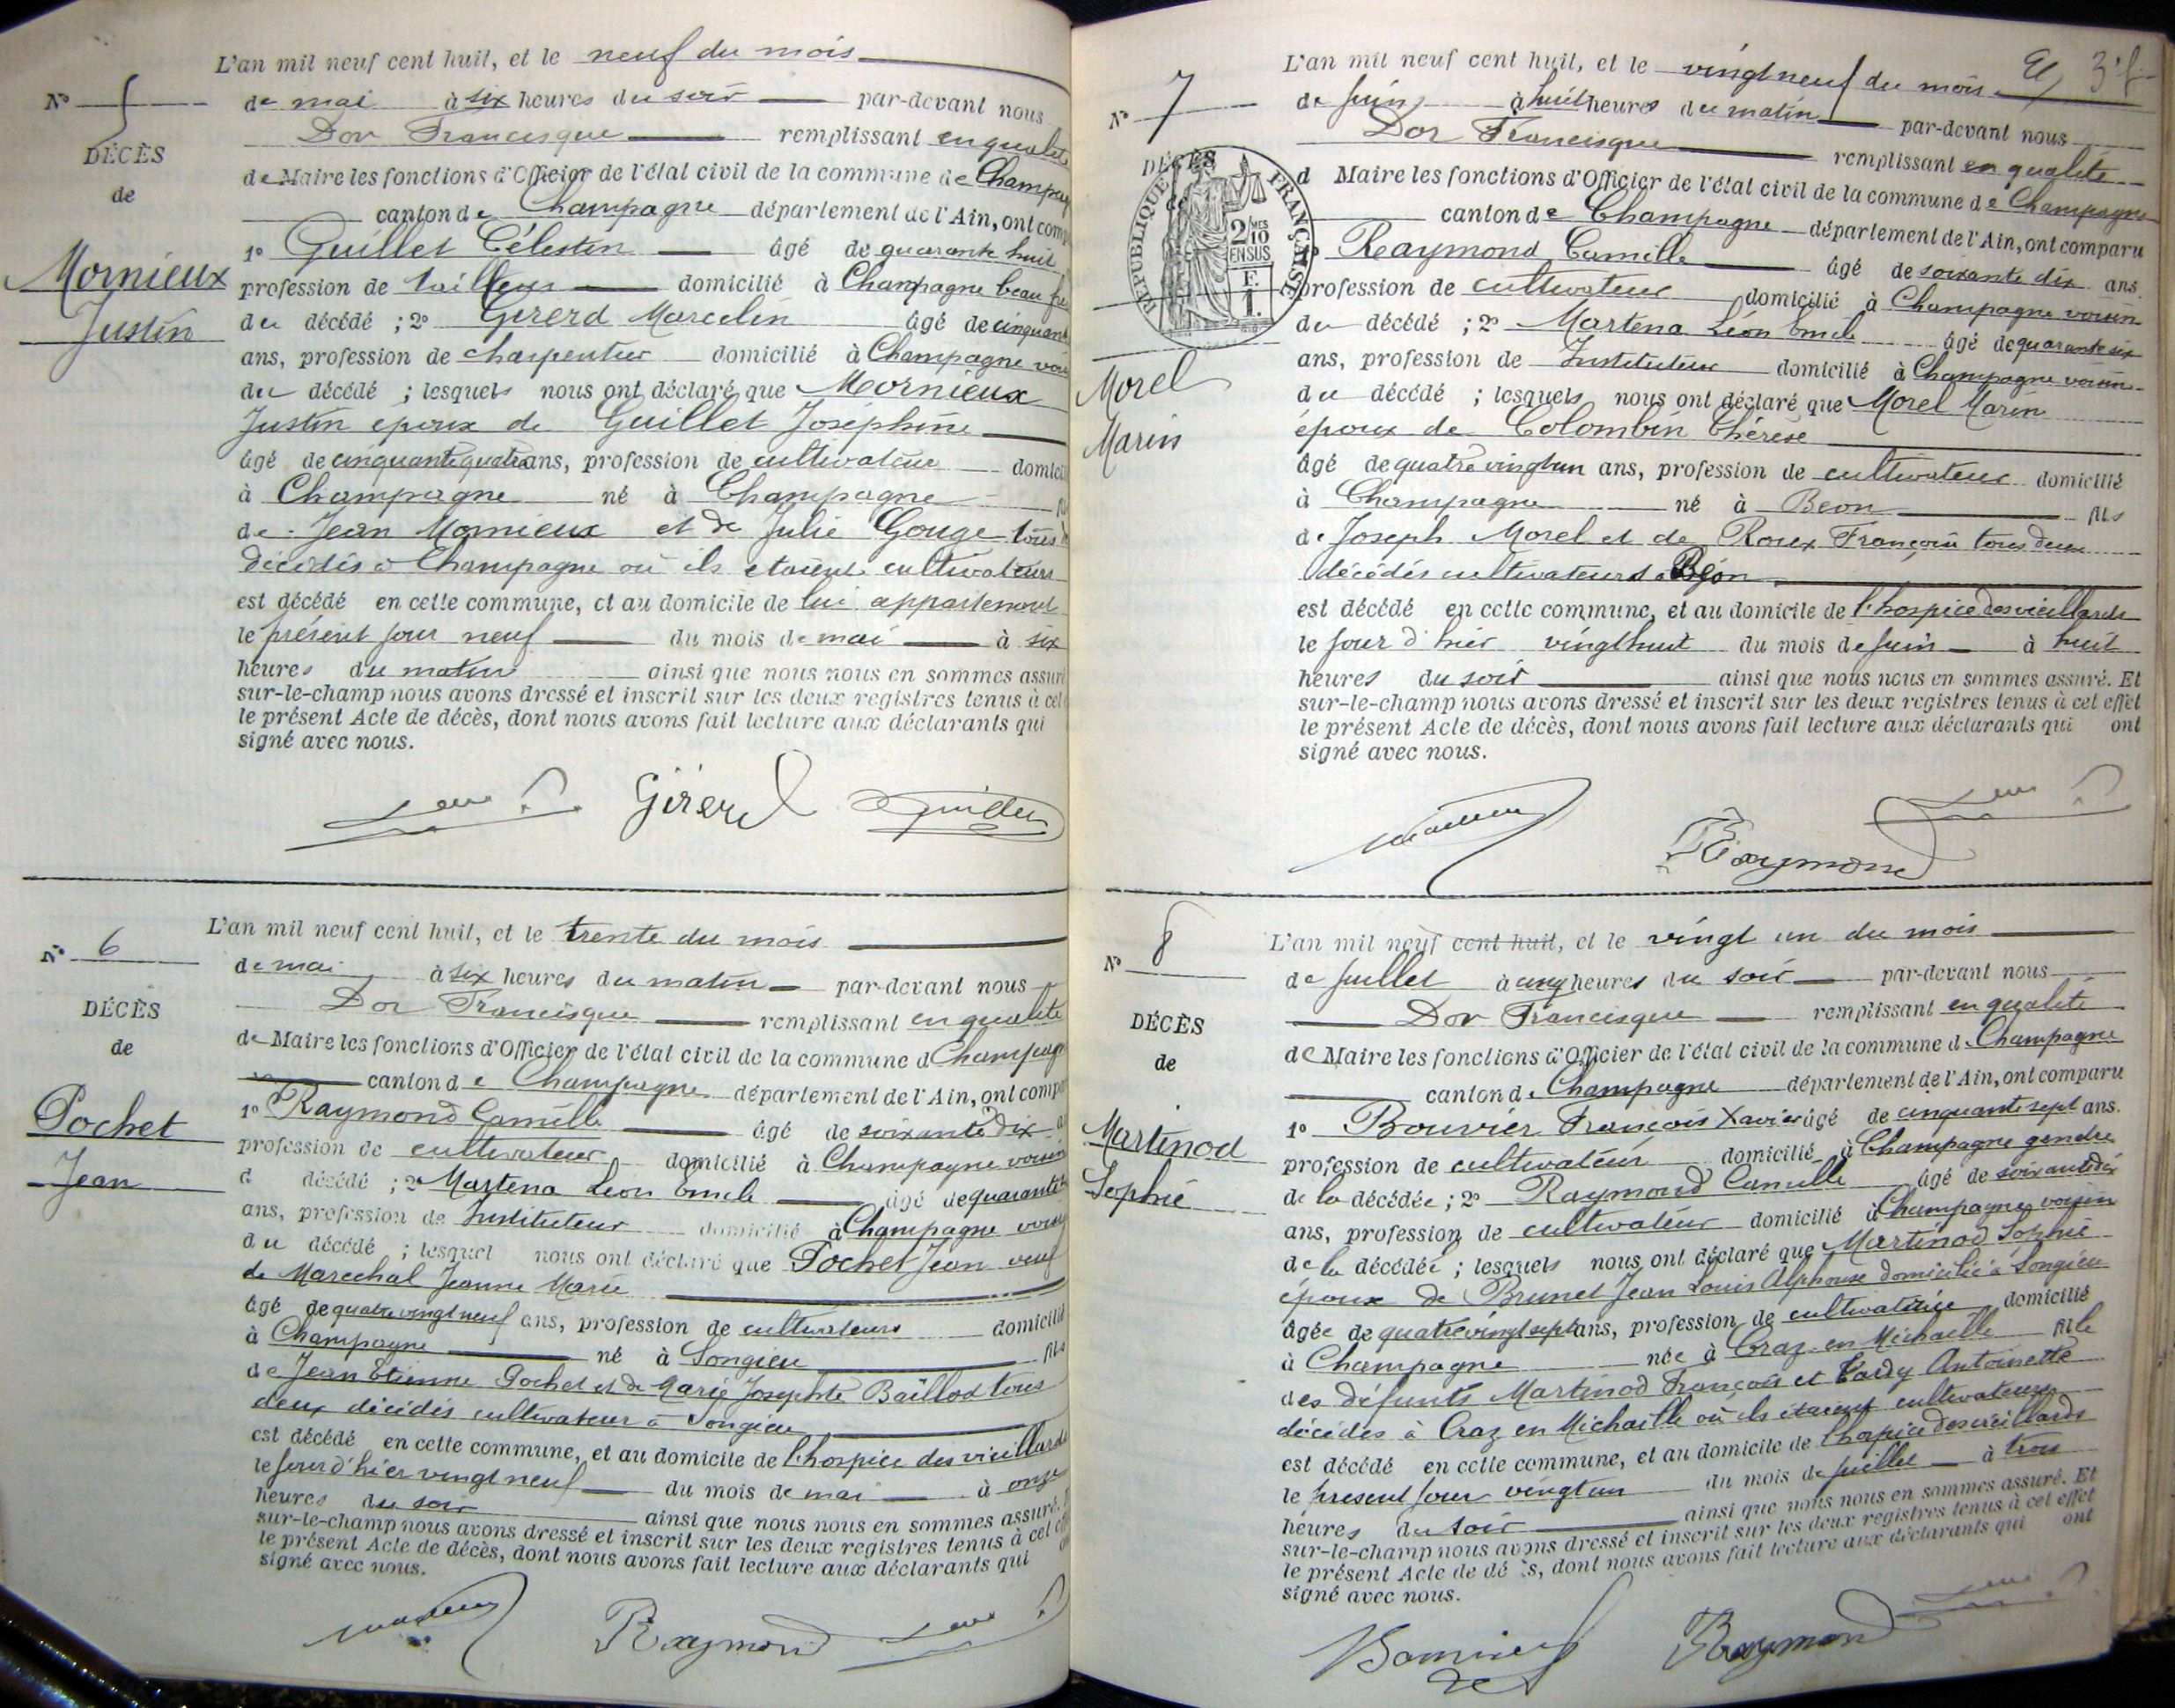 L'an mil neuf cent huit, et le neuf du mois
N° 5
de mai à six heures du soir par-devant nous
DÉCÈS
Dor Francisque remplissant en qualité
de
de Maire les fonctions d'Officier de l'état civil de la commune de Champag
canton de Champagne département de l'Ain, ont com
Mornieux
Justin
1° Guillet Célestin âgé de quarante huit
profession de tailleur domicilié à Champagne beau frè
du décédé ; 2° Gererd Marcelin âgé de cinquan
ans, profession de charpentier domicilié à Champagne voi
du décédé ; lesquels nous ont déclaré que Mornieux
Justin époux de Guillet Joséphine
âgé de cinquante quatre ans, profession de cultivateur domici
à Champagne né à Champagne
de Jean Mornieux et de Julie Gouge tous
décédés à Champagne où ils étaient cultivateurs
est décédé en cette commune, et au domicile de lui appartenant
le présent jour neuf du mois de mai à six
heures du matin ainsi que nous nous en sommes assur
sur-le-champ nous avons dressé et inscrit sur les deux registres tenus à cet
le présent Acte de décès, dont nous avons fait lecture aux déclarants qui
signé avec nous.
Girerd Guillet
L'an mil neuf cent huit, et le trente du mois
N° 6
de mai à six heures du matin par-devant nous
DÉCÈS
Dor Francisque remplissant en qualité
de
de Maire les fonctions d'Officier de l'état civil de la commune d Champag
canton de Champagne département de l'Ain, ont comp
Pochet
Jean
1° Raymond Camille âgé de soixante dix
profession de cultivateur domicilié à Champagne voisin
d décédé ; 2° Martena Léon Emile âgé de quarante
ans, profession de Instituteur domicilié à Champagne voisin
du décédé ; lesquel nous ont déclaré que Pochet Jean veuf
de Marechal Jeanne Marie
âgé de quatre vingt neuf ans, profession de cultivateurs domicilié
à Champagne né à Songieu fils
de Jean Etienne Pochet et de Marie Josephte Baillod tous
deux décédés cultivateur à Songieu
est décédé en cette commune, et au domicile de l'hospice des vieillards
le jour d'hier vingt neuf du mois de mai à onze
heures du soir ainsi que nous nous en sommes assuré.
sur-le-champ nous avons dressé et inscrit sur les deux registres tenus à cet
le présent Acte de décès, dont nous avons fait lecture aux déclarants qui
signé avec nous.
Raymond
L'an mil neuf cent huit, et le vingt neuf du mois
N° 7
de juin à huit heures du matin par-devant nous
DÉCÈS
de
RÉPUBLIQUE FRANÇAISE
2/10 MES
EN SUS
F.
1.
Dor Francisque remplissant en qualité
d Maire les fonctions d'Officier de l'état civil de la commune de Champagne
canton de Champagne département de l'Ain, ont comparu
Raymond Camille âgé de soixante dix ans.
profession de cultivateur domicilié à Champagne voisin
du décédé ; 2° Martena Léon Emile âgé de quarante six
Morel
Marin
ans, profession de Instituteur domicilié à Champagne voisin
du décédé ; lesquels nous ont déclaré que Morel Marin
époux de Colombin Thérèse
âgé de quatre vingt un ans, profession de cultivateur domicilié
à Champagne né à Beon fils
de Joseph Morel et de Roux Françoise tous deux
décédés cultivateurs à Béon
est décédé en cette commune, et au domicile de l'hospice des vieillards
le jour d'hier vingt huit du mois de juin à huit
heures du soir ainsi que nous nous en sommes assuré. Et
sur-le-champ nous avons dressé et inscrit sur les deux registres tenus à cet effet
le présent Acte de décès, dont nous avons fait lecture aux déclarants qui ont
signé avec nous.
Raymond
L'an mil neuf cent huit, et le vingt un du mois
N° 8
de juillet à cinq heures du soir par-devant nous
DÉCÈS
Dor Francisque remplissant en qualité
de
de Maire les fonctions d'Officier de l'état civil de la commune d Champagne
canton de Champagne département de l'Ain, ont comparu
Martinod
Sophie
1° Bouvier François Xavier âgé de cinquante sept ans.
profession de cultivateur domicilié à Champagne gendre
de la décédée ; 2° Raymond Camille âgé de soixante dix
ans, profession de cultivateur domicilié à Champagne voisin
de la décédée ; lesquels nous ont déclaré que Martinod Sophie
époux de Brunet Jean Louis Alphonse domicilié à Songieu
âgée de quatre vingt sept ans, profession de cultivatrice domicilié
à Champagne née à Craz en Michaille fille
des défunts Martinod François et Tardy Antoinette
décédés à Craz en Michaille où ils étaient cultivateurs
est décédé en cette commune, et au domicile de l'hospice des vieillards
le présent jour vingt un du mois de juillet à trois
heures du soir ainsi que nous nous en sommes assuré. Et
sur-le-champ nous avons dressé et inscrit sur les deux registres tenus à cet effet
le présent Acte de dé s, dont nous avons fait lecture aux déclarants qui ont
signé avec nous.
Bouvier Raymond